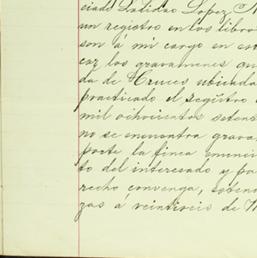 ciado Ladislao Lopez N
un registro en los libro
son á mi cargo en es
car los gravamenes que
da de Cruces ubicada
practicado el registro
mil ochocientos seten
no se encuentra grava
porte la finca
to del interesado y pa
recho convenga,
gas á veintiseis de M